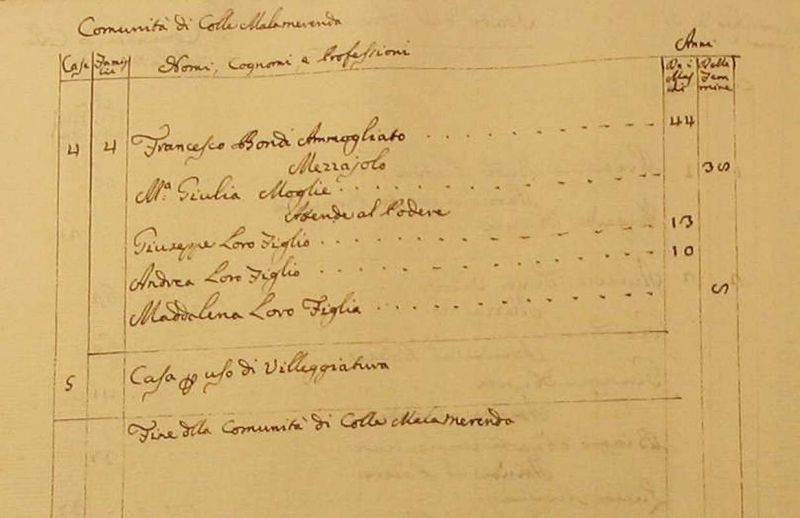 Comunità di Colle Malamerenda
Anni
Case Famiglie Nomi, Cognomi, e Professioni De i Maschi Delle Femmine
4 4 Francesco Bondi Ammogliato 44
Mezzajolo
Mª. Giulia Moglie 35
Attende al Podere
Giuseppe Loro Figlio 13
Andrea Loro Figlio 10
Maddalena Loro Figlia 5
5 Casa p uso di Villeggiatura
Fine della Comunità di Colle Malamerenda